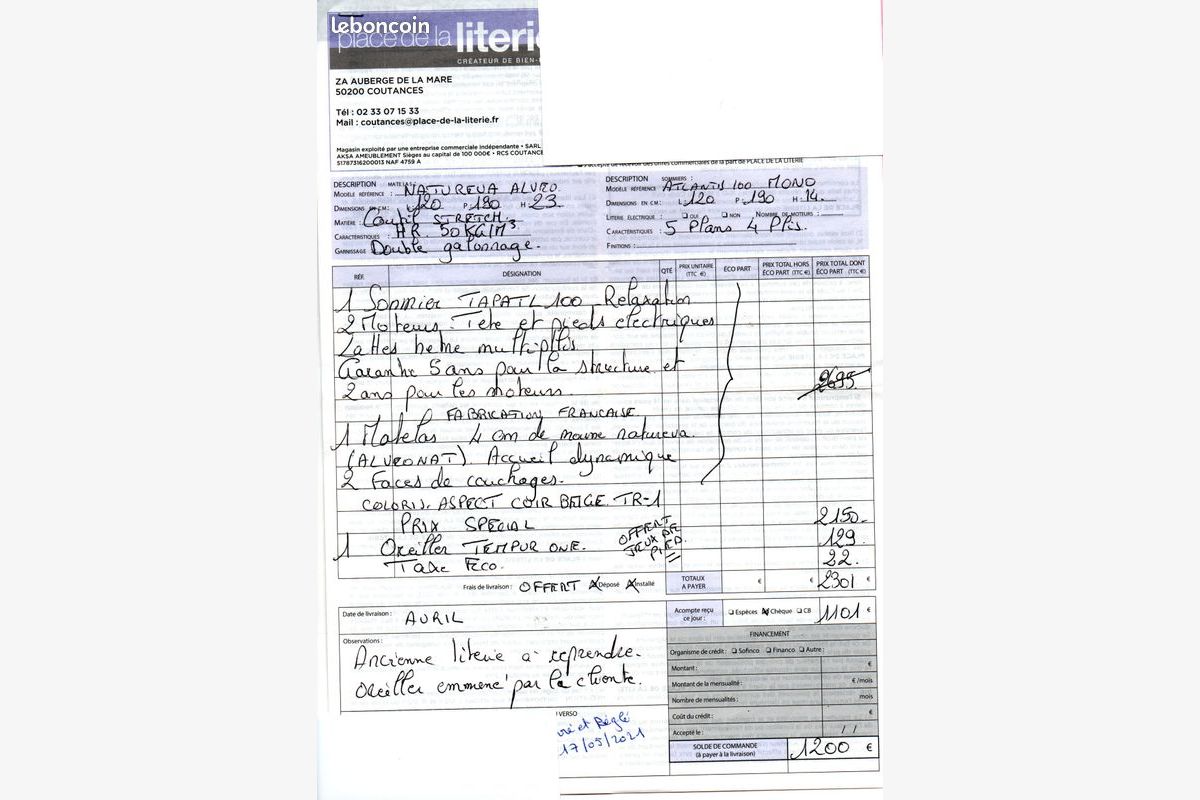 leboncoin
place de la literie
CRÉATEUR DE BIEN-
ZA AUBERGE DE LA MARE
50200 COUTANCES
Tél : 02 33 07 15 33
Mail : coutances@place-de-la-literie.fr
Magasin exploité par une entreprise commerciale indépendante • SARL
AKSA AMEUBLEMENT Sièges au capital de 100 000€ • RCS COUTANCE
51787316200013 NAF 4759 A
J'accepte de recevoir des offres commerciales de la part de PLACE DE LA LITERIE
DESCRIPTION MATELAS :
MODÈLE RÉFÉRENCE : NATUREVA ALVEO.
DIMENSIONS EN CM : L 120 P 190 H 23.
MATIÈRE : Coutil STRETCH.
CARACTÉRISTIQUES : HR. 50 KG/M³
GARNISSAGE Double galonnage.
DESCRIPTION SOMMIERS :
MODÈLE RÉFÉRENCE : ATLANTIS 100 MONO
DIMENSIONS EN CM : L 120 P 190 H 14.
LITERIE ÉLECTRIQUE : OUI NON NOMBRE DE MOTEURS :
CARACTÉRISTIQUES : 5 Plans 4 Plis.
FINITIONS :
RÉF. DÉSIGNATION QTÉ PRIX UNITAIRE (TTC €) ÉCO PART PRIX TOTAL HORS ÉCO PART (TTC €) PRIX TOTAL DONT ÉCO PART (TTC €)
1 Sommier TAPATL 100 Relaxation
2 Moteurs. Tete et pieds electriques
Lattes hetre multiplis
Garantie 5 ans pour la structure et
2695.
2 ans pour les moteurs.
FABRICATION FRANCAISE.
1 Matelas 4 cm de mousse natureva.
(ALVEONAT). Accueil dynamique
2 Faces de couchages.
COLORIS. ASPECT CUIR BEIGE. TR-1
PRIX SPECIAL 2150.
1 Oreiller TEMPUR ONE. OFFERT JEUX DE PIED. 129
Taxe Eco. 22.
Frais de livraison : OFFERT Déposé Installé TOTAUX A PAYER € € 2301 €
Date de livraison : AVRIL
Acompte reçu ce jour : Espèces Chèque CB 1101 €
Observations :
Ancienne literie a reprendre.
Oreiller emmené par la cliente.
FINANCEMENT
Organisme de crédit : Sofinco Financo Autre :
Montant : €
Montant de la mensualité : €/mois
Nombre de mensualités : mois
Coût du crédit : €
Accepté le : / /
SOLDE DE COMMANDE
(à payer à la livraison) 1200 €
VERSO
et Réglé
17/05/2021